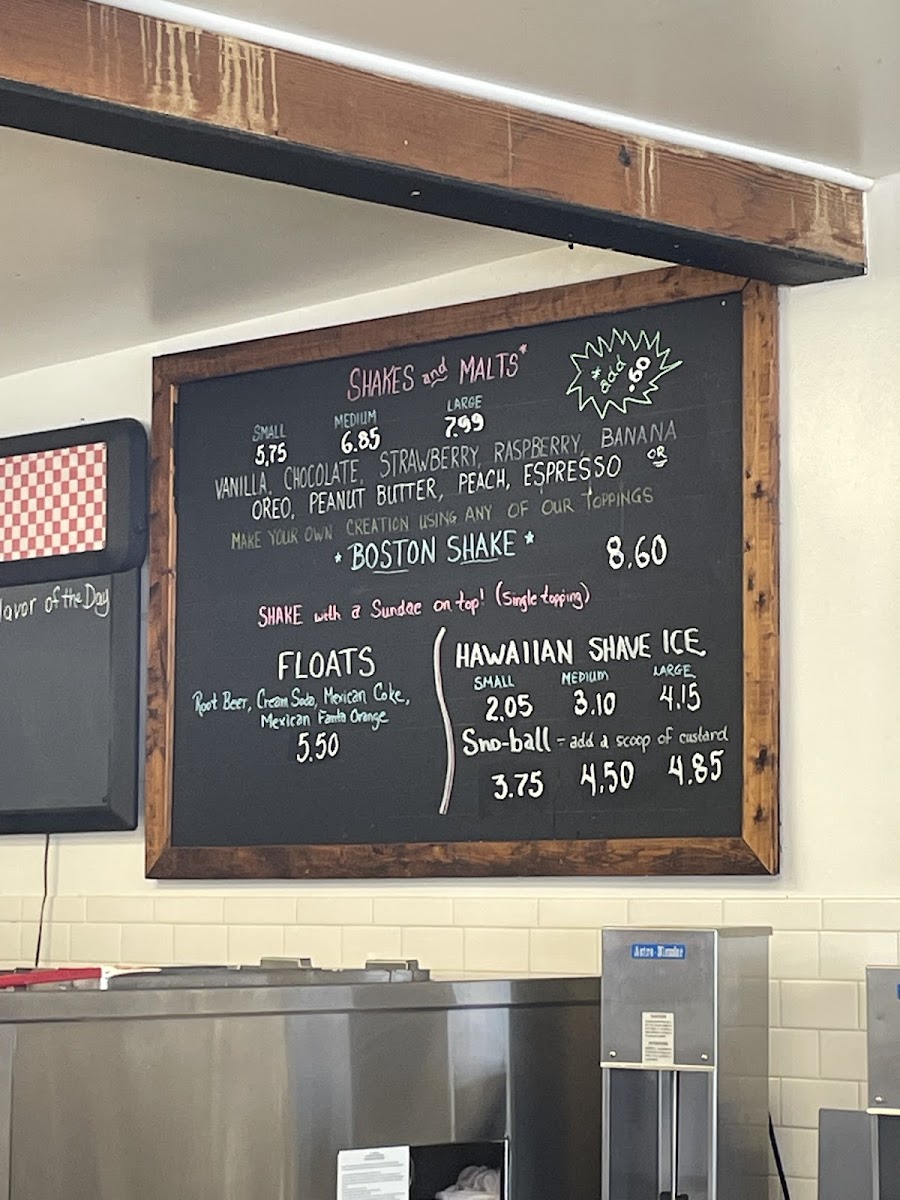 SHAKES and MALTS*
* add .60
SMALL MEDIUM LARGE
5.75 6.85 7.99
VANILLA, CHOCOLATE, STRAWBERRY, RASPBERRY, BANANA
OREO, PEANUT BUTTER, PEACH, ESPRESSO OR
MAKE YOUR OWN CREATION USING ANY OF OUR TOPPINGS
* BOSTON SHAKE * 8.60
SHAKE with a Sundae on top! (Single topping)
FLOATS
Root Beer, Cream Soda, Mexican Coke,
Mexican Fanta Orange
5.50
HAWAIIAN SHAVE ICE
SMALL MEDIUM LARGE
2.05 3.10 4.15
Sno-ball - add a scoop of custard
3.75 4.50 4.85
lavor of the Day
Astro-Blender